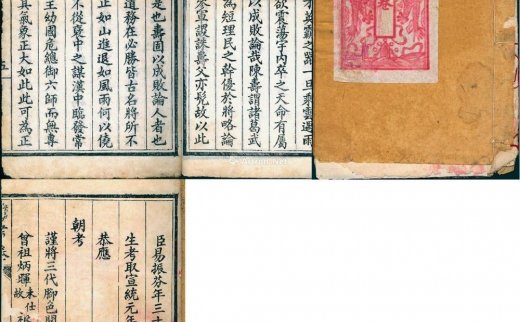 英霸之器一旦乘雲遇雨
欲雲蕩宇內卒之天命有屬
以成敗論哉陳壽謂諸葛武
為短理民之幹優於將略論
參軍謖誅壽父亦髡故以此
是也壽固以成敗論人者也
道務在必勝皆古名將所不
正如山進退如風雨何以僥
不從褒中之謀漢中臨發常
王幼國危總御六師而無專
其氣象正大如此此可為正
五
卷
臣易振芬年三十
生考取宣統元年
恭應
朝考
謹將三代腳色開
曾祖炳暉未仕故